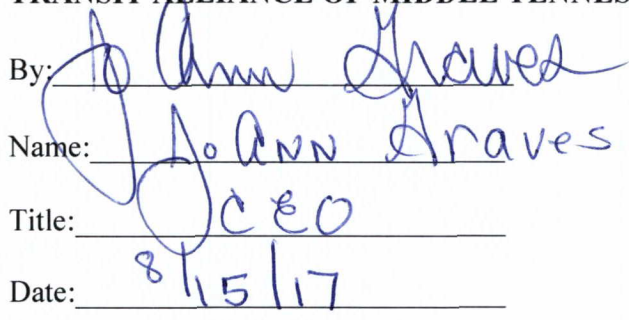 TRANSIT ALLIANCE OF MIDDLE TENNES
By: Jo Ann Graves
Name: Jo Ann Graves
Title: CEO
Date: 8/15/17